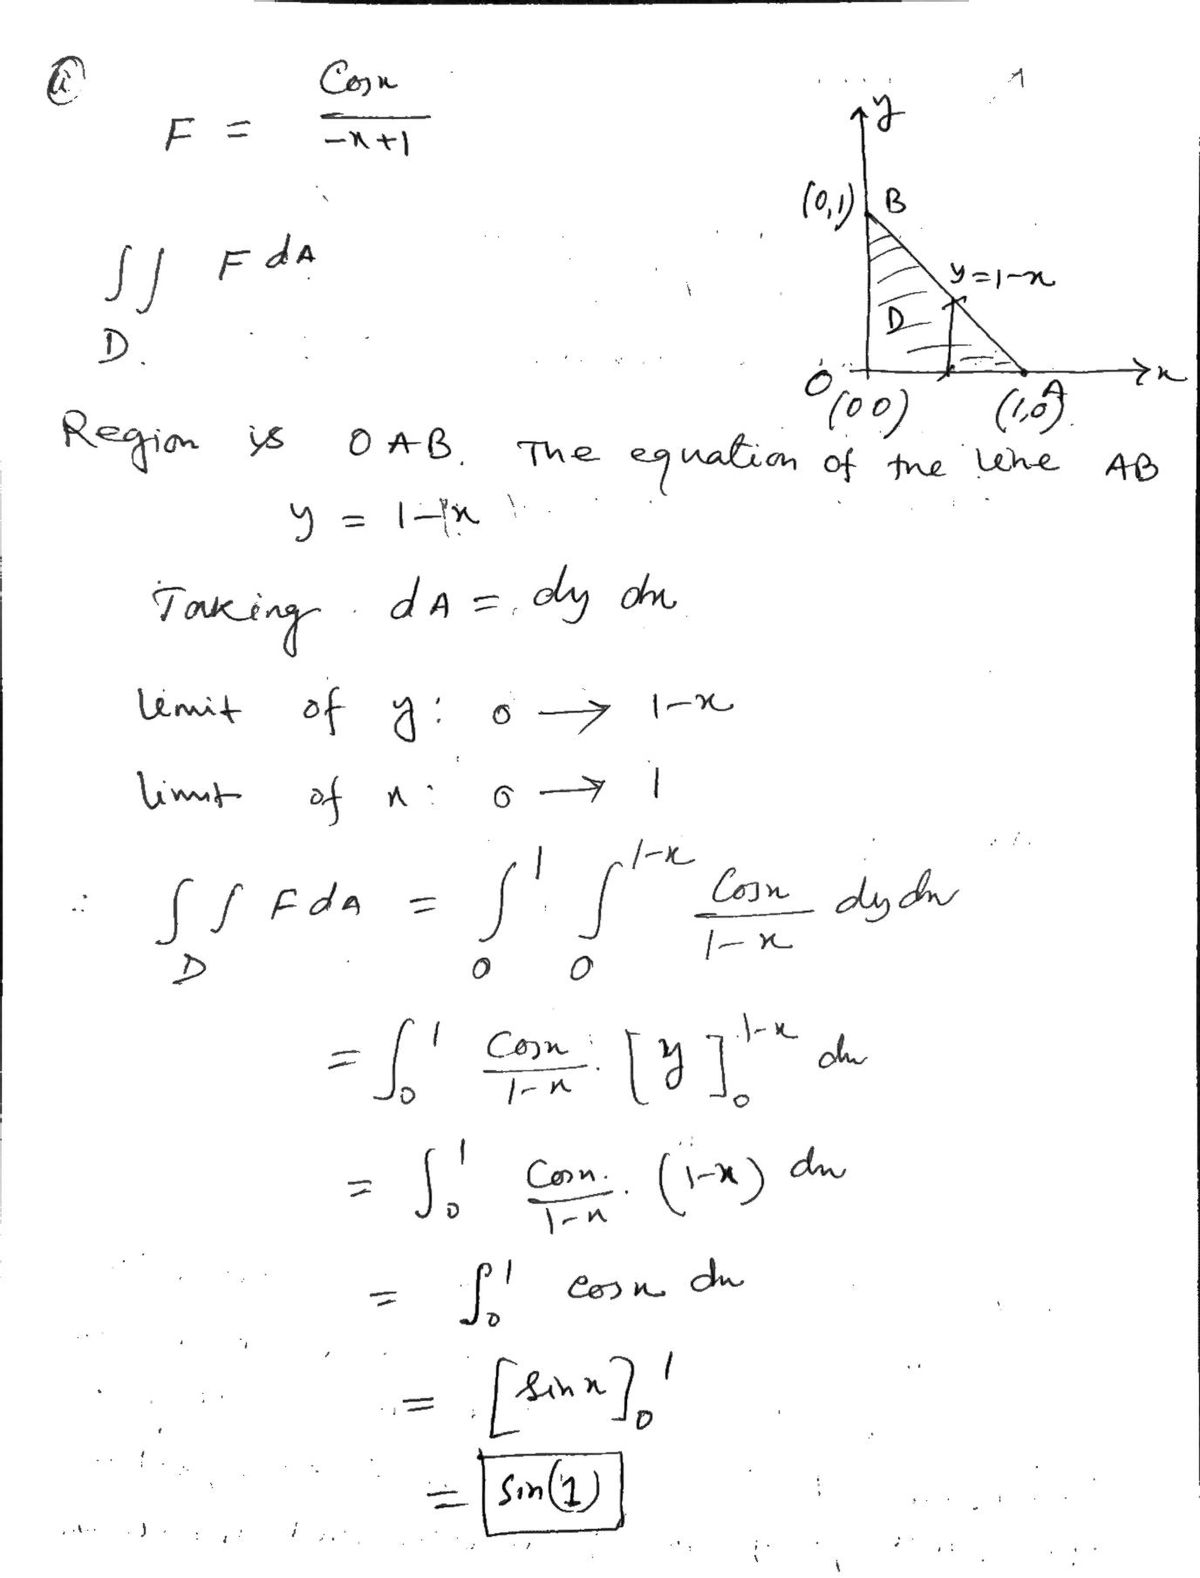 (i)
F = Cosx / -x+1
y
(0,1) B
y=1-x
D
O (0 0) (1,0) A x
∬ F dA
D.
Region is OAB. The equation of the line AB
y = 1-x
Taking dA = dy dx
limit of y: 0 → 1-x
limit of x: 0 → 1
∴ ∫∫_D F dA = ∫_0^1 ∫_0^{1-x} Cosx / 1-x dy dx
= ∫_0^1 Cosx / 1-x . [y]_0^{1-x} dx
= ∫_0^1 Cosx. / 1-x . (1-x) dx
= ∫_0^1 cosx dx
= [sinx]_0^1
= sin(1)